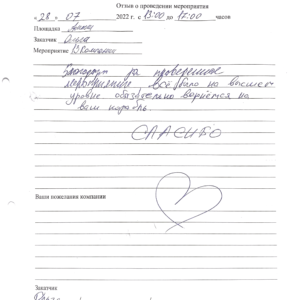 Отзыв о проведении мероприятия
« 28 » 07 2022 г. с 13:00 до 17:00 часов
Площадка
Заказчик Ольга
Мероприятие
Благодарим за проведенное
мероприятие. Всё было на высшем
уровне обязательно вернёмся на
ваш корабль.
СПАСИБО
Ваши пожелания компании
Заказчик